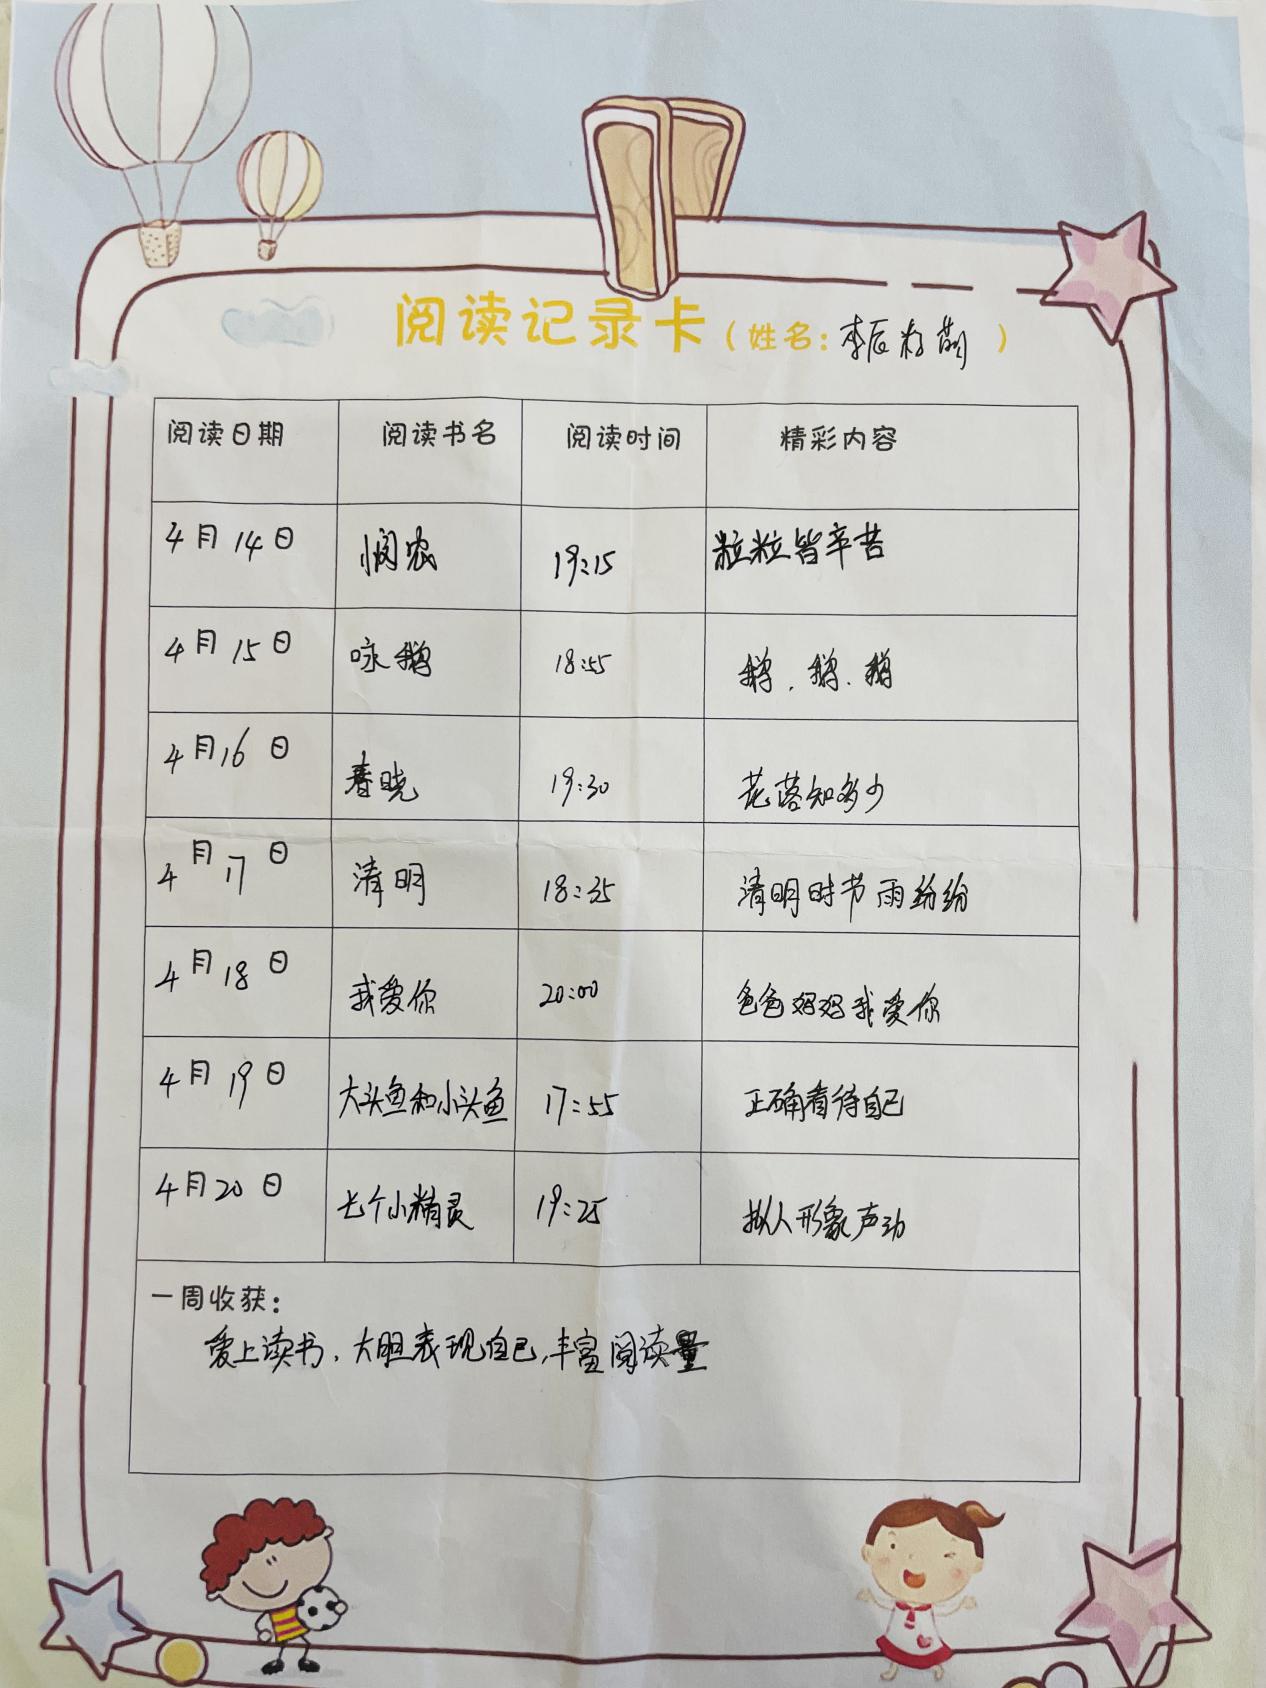 阅读记录卡（姓名：李辰籽萌）
阅读日期 阅读书名 阅读时间 精彩内容
4月14日 悯农 19:15 粒粒皆辛苦
4月15日 咏鹅 18:55 鹅、鹅、鹅
4月16日 春晓 19:30 花落知多少
4月17日 清明 18:35 清明时节雨纷纷
4月18日 我爱你 20:00 爸爸妈妈我爱你
4月19日 大头鱼和小头鱼 17:55 正确看待自己
4月20日 七个小精灵 19:25 拟人形象声动
一周收获：
爱上读书、大胆表现自己、丰富阅读量